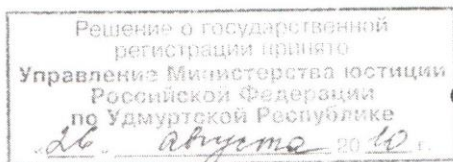 Решение о государственной
регистрации принято
Управление Министерства юстиции
Российской Федерации
по Удмуртской Республике
«26» августа 2010 г.